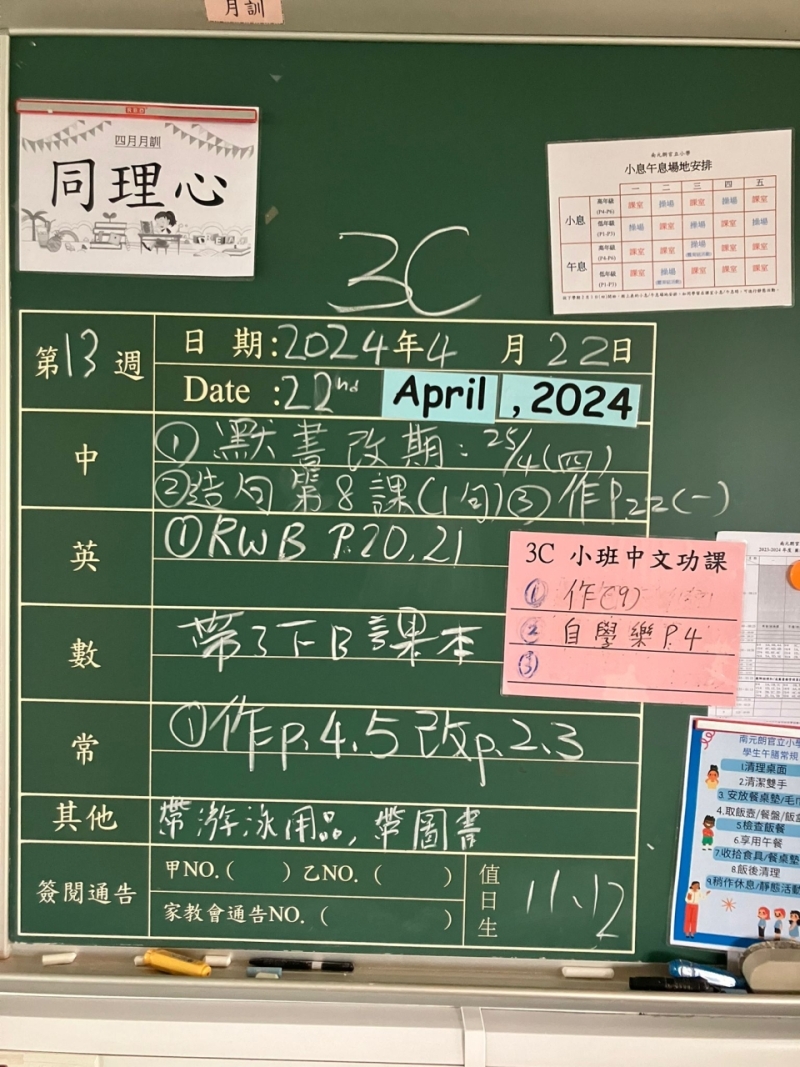 月訓
四月月訓
同理心
南元朗官立小學
小息午息場地安排
一 二 三 四 五
小息 高年級 (P4-P6) 課室 操場 課室 操場 課室
低年級 (P1-P3) 操場 課室 操場 課室 操場
午息 高年級 (P4-P6) 課室 課室 操場 課室 課室
低年級 (P1-P3) 課室 操場 課室 課室 課室
3C
第13週
日 期:2024年4 月22日
Date :22nd April , 2024
中
①默書改期:25/4(四)
②造句第8課(1句)③作P.22(一)
英
①RWB P.20,21
數
帶3下B課本
常
①作p.4.5改p.2.3
其他
帶游泳用品,帶圖書
簽閱通告
甲NO.( )乙NO.( )
家教會通告NO.( )
值日生
11、12
3C 小班中文功課
① 作(9)
② 自學樂P.4
③
南元朗官立小學
學生午膳常規
1.清理桌面
2.清潔雙手
3.安放餐桌墊/毛巾
4.取飯壺/餐盤/飯盒
5.檢查飯餐
6.享用午餐
7.收拾食具/餐桌墊
8.飯後清理
9.稍作休息/靜態活動